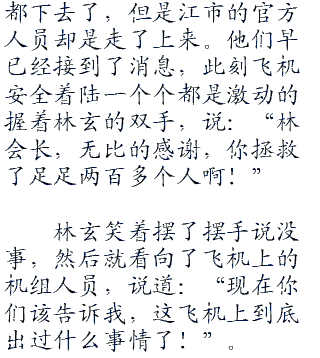 都下去了，但是江市的官方
人员却是走了上来。他们早
已经接到了消息，此刻飞机
安全着陆一个个都是激动的
握着林玄的双手，说：“林
会长，无比的感谢，你拯救
了足足两百多个人啊！”
林玄笑着摆了摆手说没
事，然后就看向了飞机上的
机组人员，说道：“现在你
们该告诉我，这飞机上到底
出过什么事情了！”。